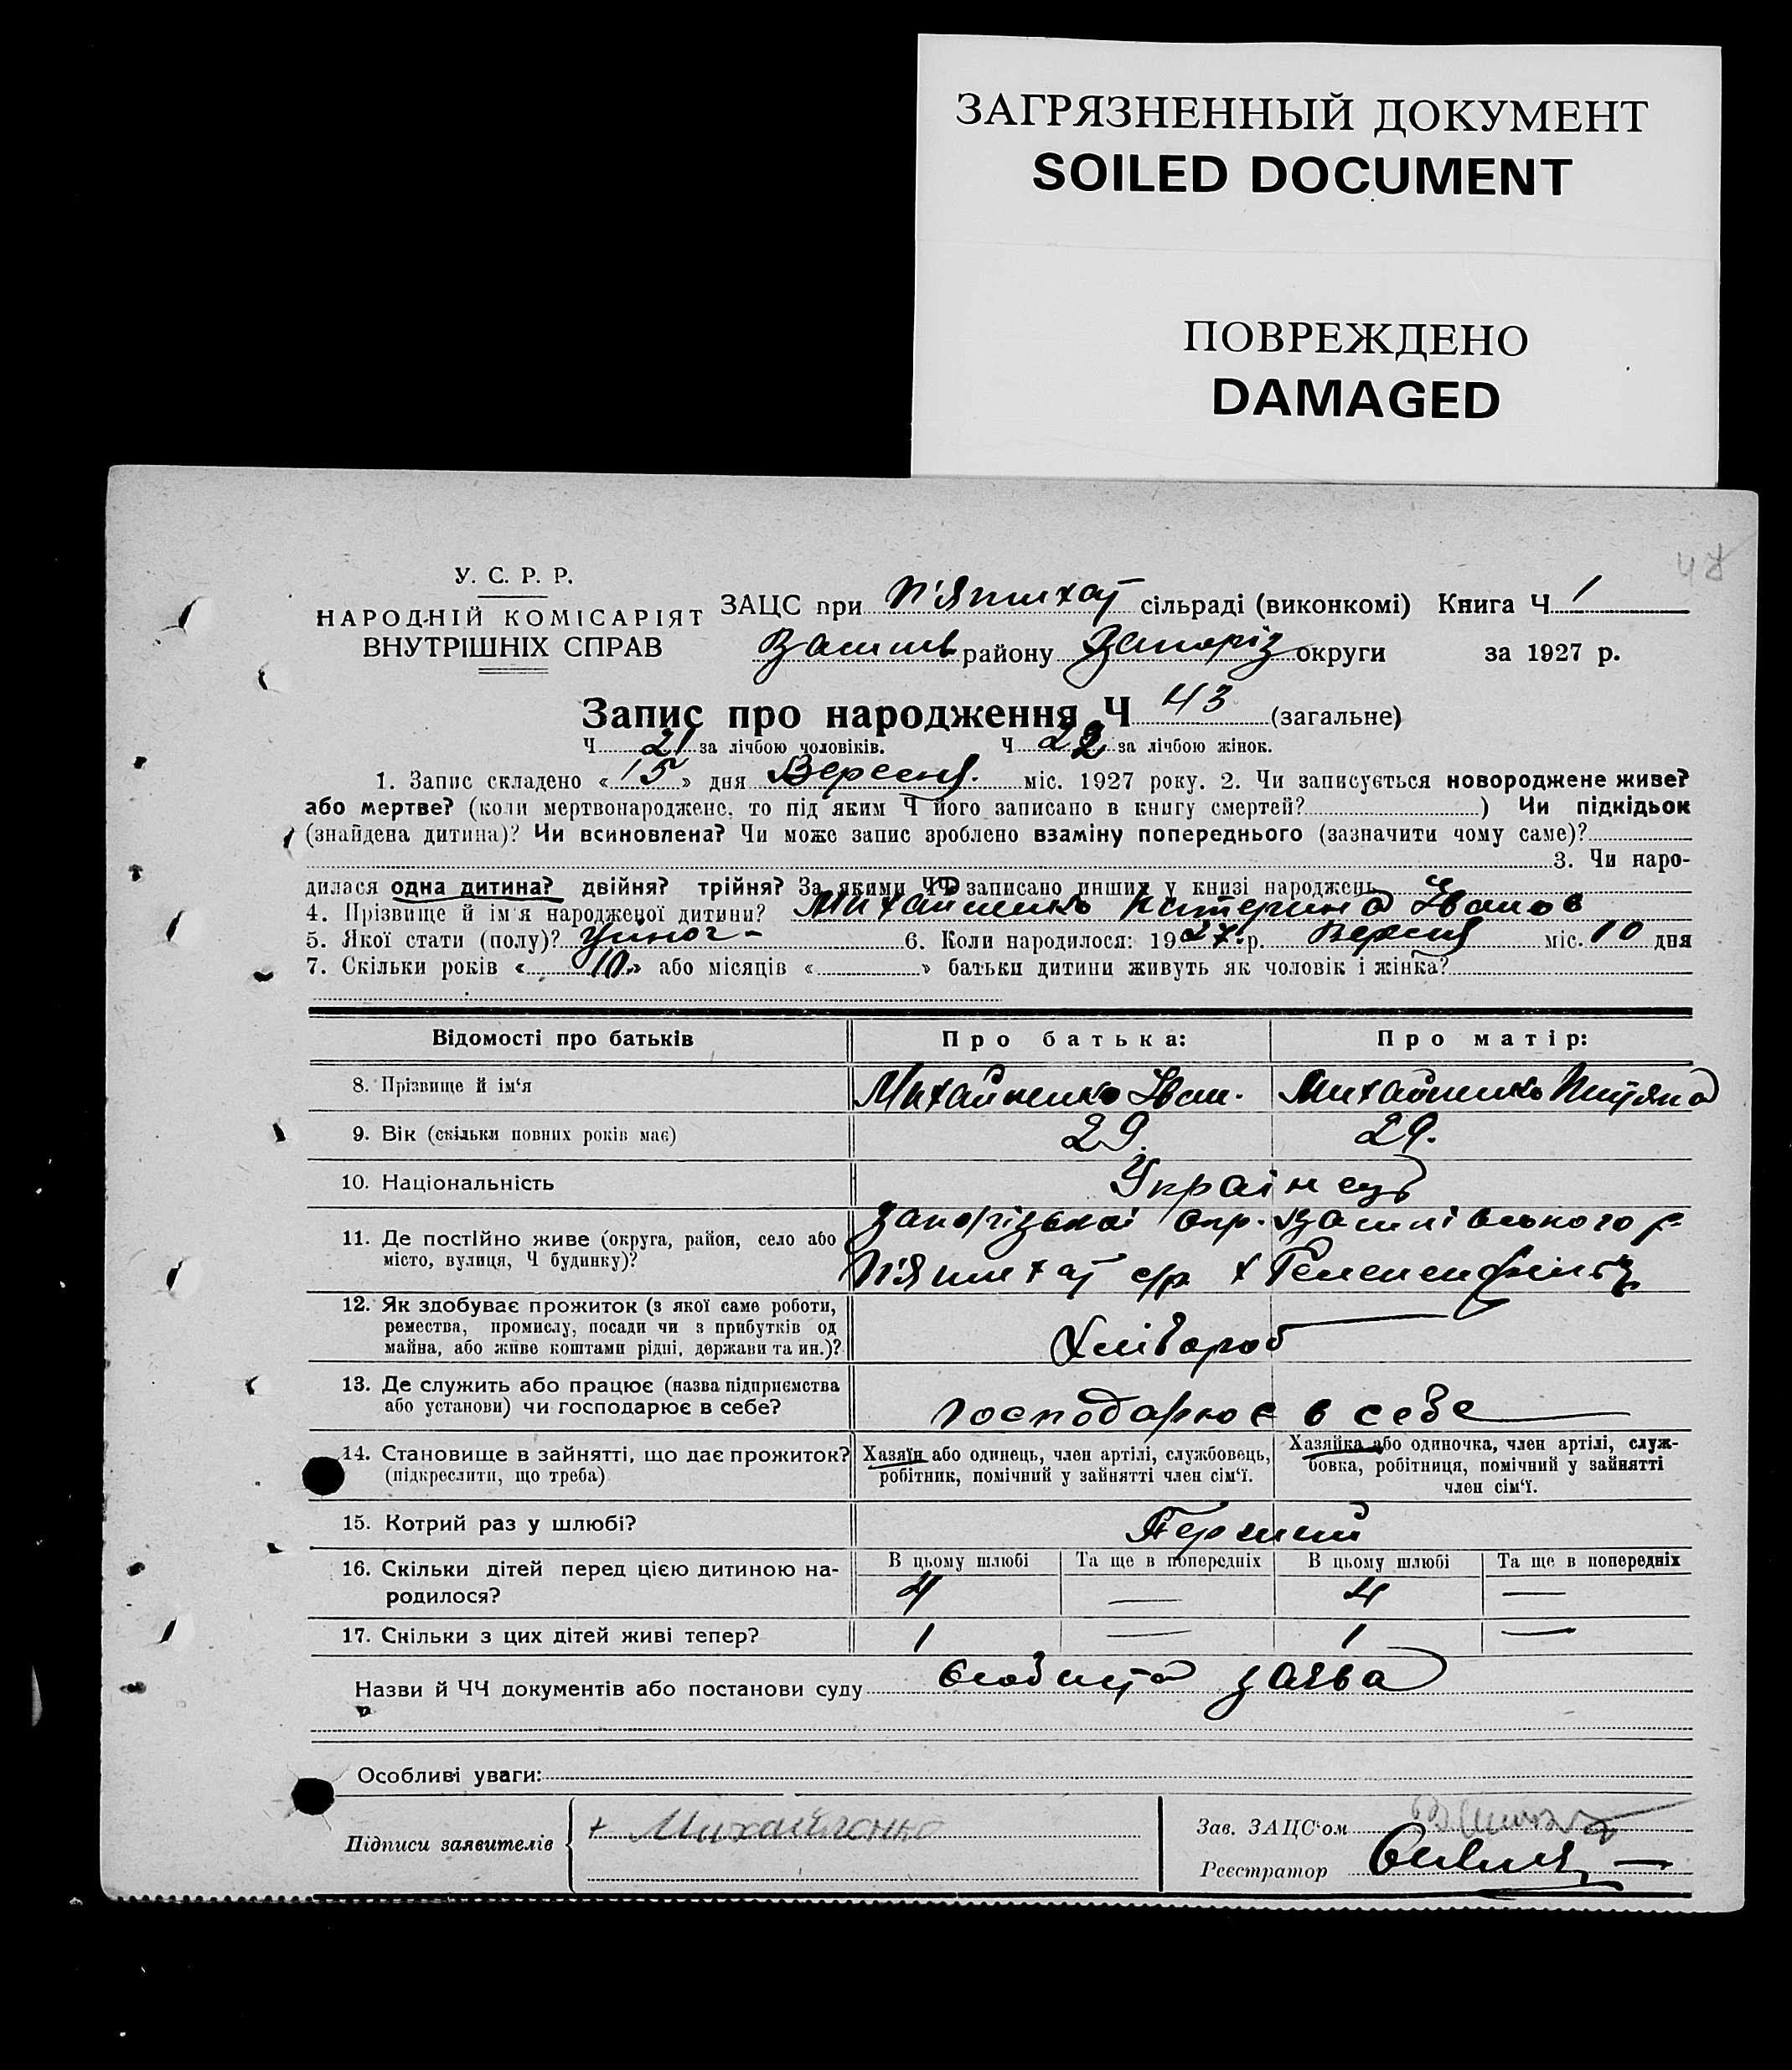 ЗАГРЯЗНЕННЫЙ ДОКУМЕНТ
SOILED DOCUMENT
ПОВРЕЖДЕНО
DAMAGED
У. С. Р. Р.
НАРОДНІЙ КОМІСАРІЯТ
ВНУТРІШНІХ СПРАВ
ЗАЦС при П'ятихат сільраді (виконкомі) Книга Ч 1
району Запоріз округи за 1927 р.
Запис про народження Ч 43 (загальне)
Ч 21 за лічбою чоловіків. Ч 22 за лічбою жінок.
1. Запис складено «15» дня Вересня. міс. 1927 року. 2. Чи записується новороджене живе?
або мертве? (коли мертвонароджене, то під яким Ч його записано в книгу смертей? ) Чи підкідьок
(знайдена дитина)? Чи всиновлена? Чи може запис зроблено взаміну попереднього (зазначити чому саме)?
3. Чи наро-
дилася одна дитина? двійня? трійня? За якими ЧЧ записано инших у книзі народжень
4. Прізвище й ім'я народженої дитини? Михайленко Катерина Іванов
5. Якої стати (полу)? жіноч- 6. Коли народилося: 1927 р. Вересня міс. 10 дня
7. Скільки років «10» або місяців « » батьки дитини живуть як чоловік і жінка?
Відомості про батьків Про батька: Про матір:
8. Прізвище й ім'я Михайленко Іван. Михайленко
9. Вік (скільки повних років має) 29. 29.
10. Національність Українець
11. Де постійно живе (округа, район, село або Запорізької окр. р.
місто, вулиця, Ч будинку)? П'ятихат с/р х
12. Як здобуває прожиток (з якої саме роботи,
ремества, промислу, посади чи з прибутків од
майна, або живе коштами рідні, держави та ин.)? Хлібороб
13. Де служить або працює (назва підприємства
або установи) чи господарює в себе? господарює в себе
14. Становище в зайнятті, що дає прожиток? Хазяїн або одинець, член артілі, службовець, Хазяйка або одиночка, член артілі, служ-
(підкреслити, що треба) робітник, помічний у зайнятті член сім'ї. бовка, робітниця, помічний у зайнятті
член сім'ї.
15. Котрий раз у шлюбі? Перший
16. Скільки дітей перед цією дитиною на- В цьому шлюбі Та ще в попередніх В цьому шлюбі Та ще в попередніх
родилося? 4 — 4 —
17. Скільки з цих дітей живі тепер? 1 — 1 —
Назви й ЧЧ документів або постанови суду особиста заява
Особливі уваги:
Підписи заявителів + Михайленко
Зав. ЗАЦС'ом
Реєстратор